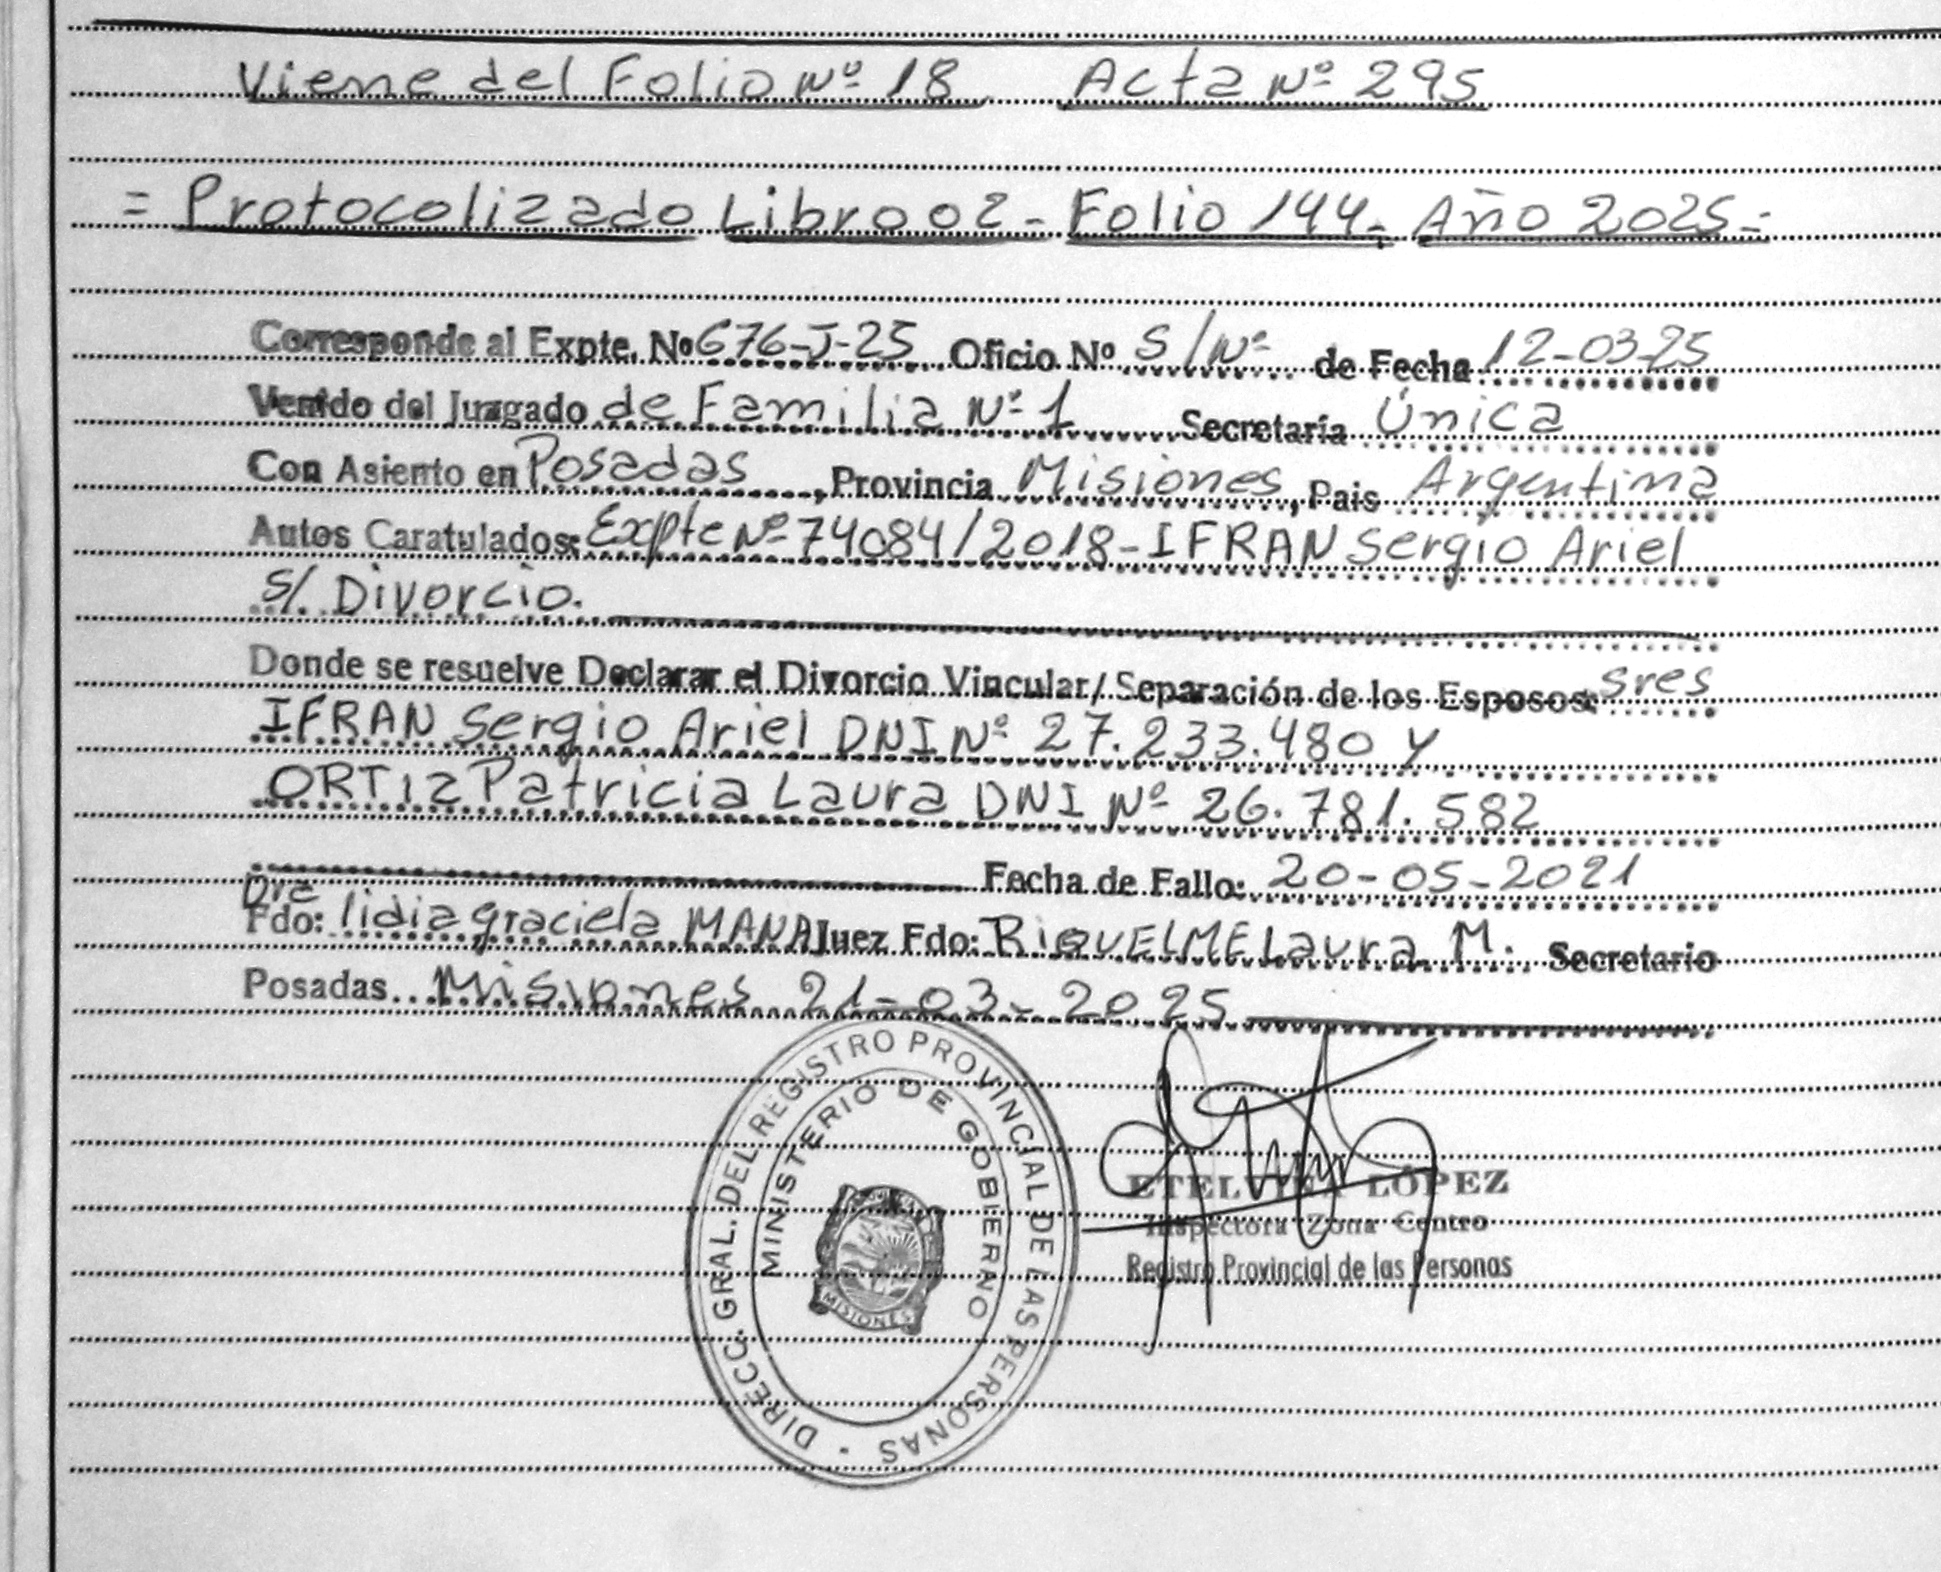 Viene del Folio Nº 18 Acta Nº 295
= Protocolizado Libro 02 - Folio 144 - Año 2025 =
Corresponde al Expte. Nº 676-J-25 Oficio Nº S/Nº de Fecha 12-03-25
Venido del Juzgado de Familia Nº 1 Secretaría Única
Con Asiento en Posadas, Provincia Misiones, Pais Argentina
Autos Caratulados: Expte Nº 74084/2018 - IFRAN Sergio Ariel
S/ Divorcio.
Donde se resuelve Declarar el Divorcio Vincular/Separación de los Esposos: sres
IFRAN Sergio Ariel DNI Nº 27.233.480 y
ORTIZ Patricia Laura DNI Nº 26.781.582
Fecha de Fallo: 20-05-2021
Dra
Fdo: lidia graciela MANA Juez Fdo: RIQUELME Laura M. Secretario
Posadas Misiones 21-03-2025
DIRECC. GRAL. DEL REGISTRO PROVINCIAL DE LAS PERSONAS
MINISTERIO DE GOBIERNO
MISIONES
ETELVINA LÓPEZ
Inspectora Zona Centro
Registro Provincial de las Personas